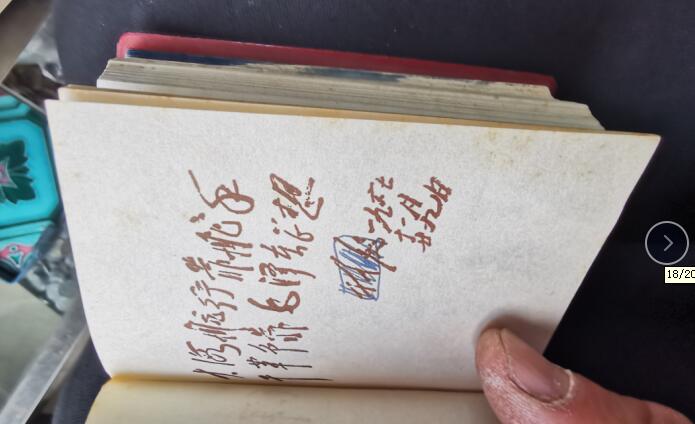 大海航行靠舵手
干革命靠毛泽东思想
林彪 一九六七
十一月
廿九日
18/20